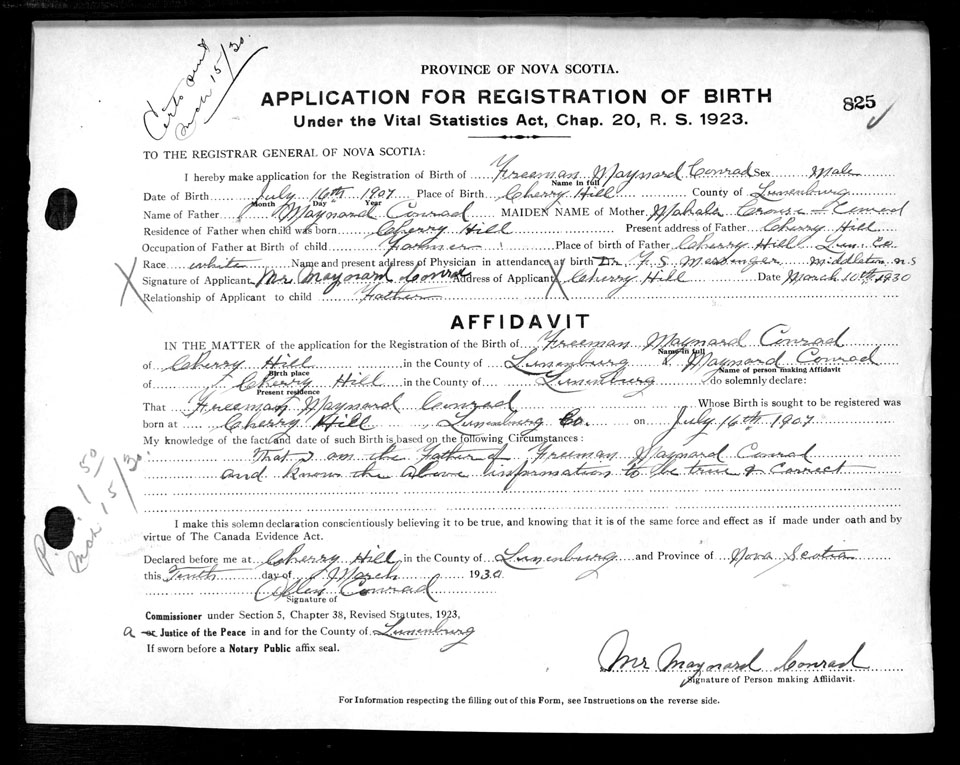 Certs sent
Mch 15/30.
PROVINCE OF NOVA SCOTIA.
APPLICATION FOR REGISTRATION OF BIRTH
825
Under the Vital Statistics Act, Chap. 20, R. S. 1923.
TO THE REGISTRAR GENERAL OF NOVA SCOTIA:
I hereby make application for the Registration of Birth of Freeman Maynard Conrad Sex Male
Name in full
Date of Birth July 16th 1907 Place of Birth Cherry Hill County of Lunenburg
Month Day Year
Name of Father Maynard Conrad MAIDEN NAME of Mother Mahala Crouse Conrad
Residence of Father when child was born Cherry Hill Present address of Father Cherry Hill
Occupation of Father at Birth of child Farmer Place of birth of Father Cherry Hill Lun. Co.
Race white Name and present address of Physician in attendance at birth Dr. F. S. Messinger Middleton N S
X Signature of Applicant Mr Maynard Conrad Address of Applicant X Cherry Hill Date March 10th 1930
Relationship of Applicant to child Father
AFFIDAVIT
IN THE MATTER of the application for the Registration of the Birth of Freeman Maynard Conrad
Name in full
of Cherry Hill in the County of Lunenburg I Maynard Conrad
Birth place Name of person making Affidavit
of Cherry Hill in the County of Lunenburg do solemnly declare:
Present residence
That Freeman Maynard Conrad Whose Birth is sought to be registered was
born at Cherry Hill, Lunenburg Co. on July 16th 1907
My knowledge of the fact and date of such Birth is based on the following Circumstances:
That I am the Father of Freeman Maynard Conrad
and know the above information to be true & Correct
P. 1.50
Mch 15/30.
I make this solemn declaration conscientiously believing it to be true, and knowing that it is of the same force and effect as if made under oath and by
virtue of The Canada Evidence Act.
Declared before me at Cherry Hill in the County of Lunenburg and Province of Nova Scotia
this Tenth day of March 1930
Allen Conrad
Signature of
Commissioner under Section 5, Chapter 38, Revised Statutes, 1923,
a or Justice of the Peace in and for the County of Lunenburg
If sworn before a Notary Public affix seal.
Mr Maynard Conrad
Signature of Person making Affidavit.
For Information respecting the filling out of this Form, see Instructions on the reverse side.